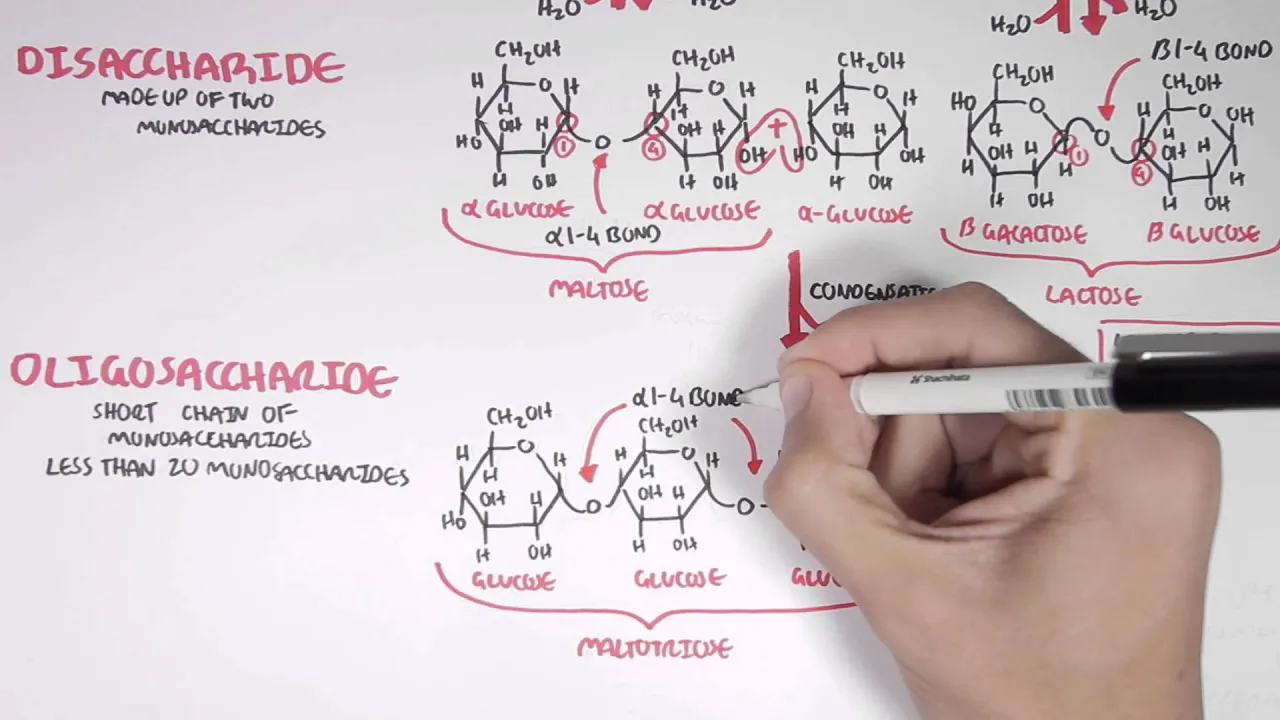 H2O H2O
H2O H2O
DISACCHARIDE
MADE UP OF TWO
MONOSACCHARIDES
CH2OH CH2OH CH2OH
H O H H O H H O H
H H H
HO OH H OH H OH HO OH H OH
1 O 4 +
H OH H OH H OH
α GLUCOSE α GLUCOSE α-GLUCOSE
α 1-4 BOND
MALTOSE
β 1-4 BOND
CH2OH CH2OH
HO O H O OH
H H
H OH H O OH H H
1 H 4
H OH H OH
β GALACTOSE β GLUCOSE
LACTOSE
CONDENSATI
OLIGOSACCHARIDE
SHORT CHAIN OF
MONOSACCHARIDES
LESS THAN 20 MONOSACCHARIDES
α 1-4 BOND
CH2OH CH2OH
H O H H O H
H H
HO OH H O OH H O
H OH H OH
GLUCOSE GLUCOSE GLUC
MALTOTRIOSE
Shachihata